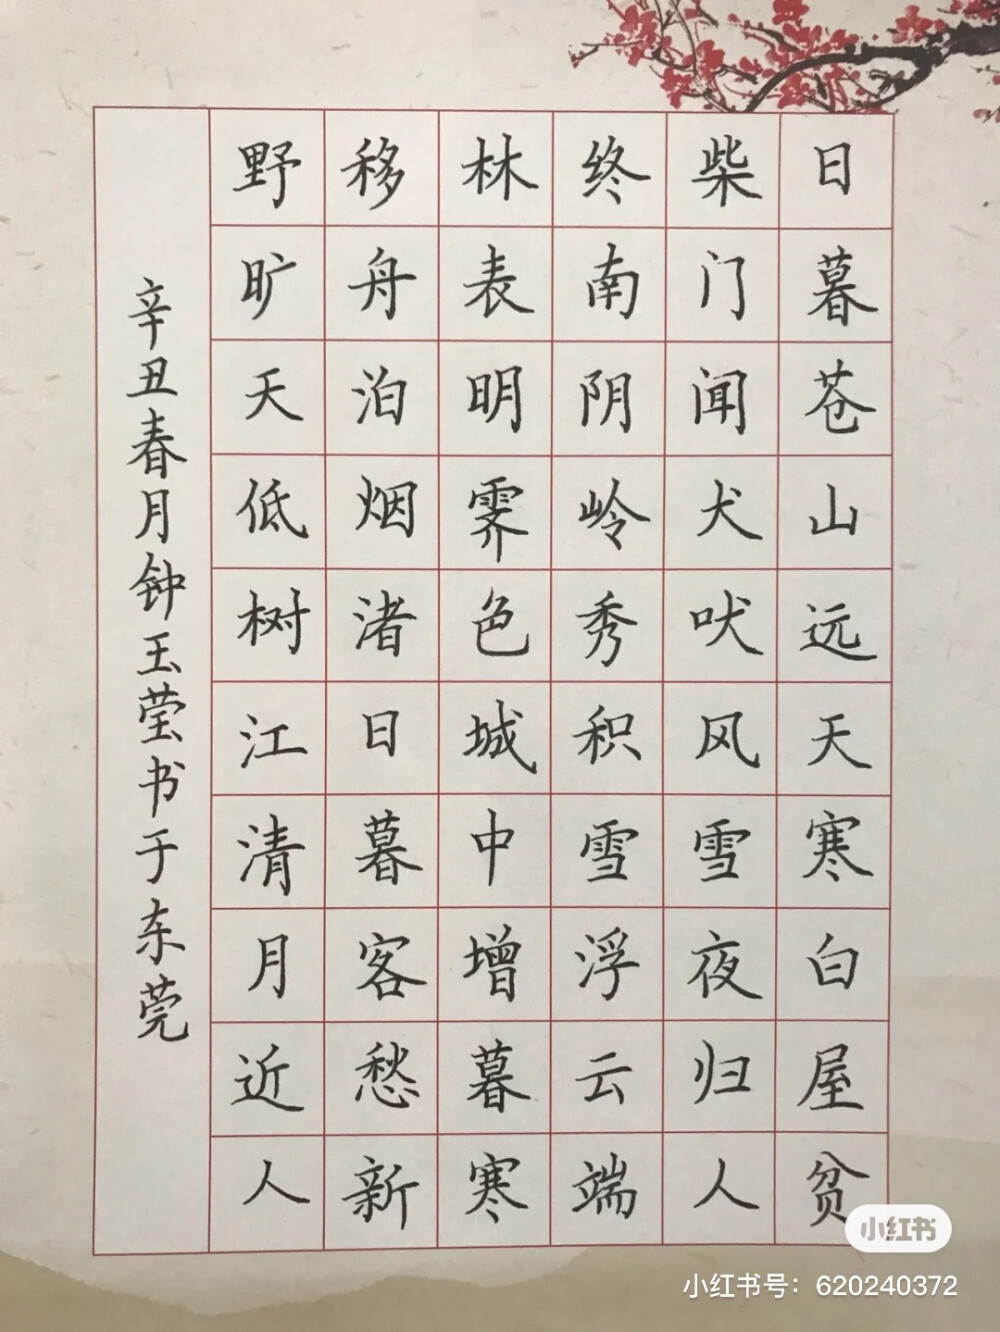 日暮苍山远天寒白屋贫
柴门闻犬吠风雪夜归人
终南阴岭秀积雪浮云端
林表明霁色城中增暮寒
移舟泊烟渚日暮客愁新
野旷天低树江清月近人
辛丑春月钟玉莹书于东莞
小红书
小红书号：620240372